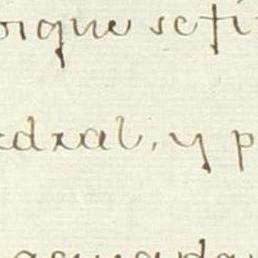 orque se ti
edral, y p